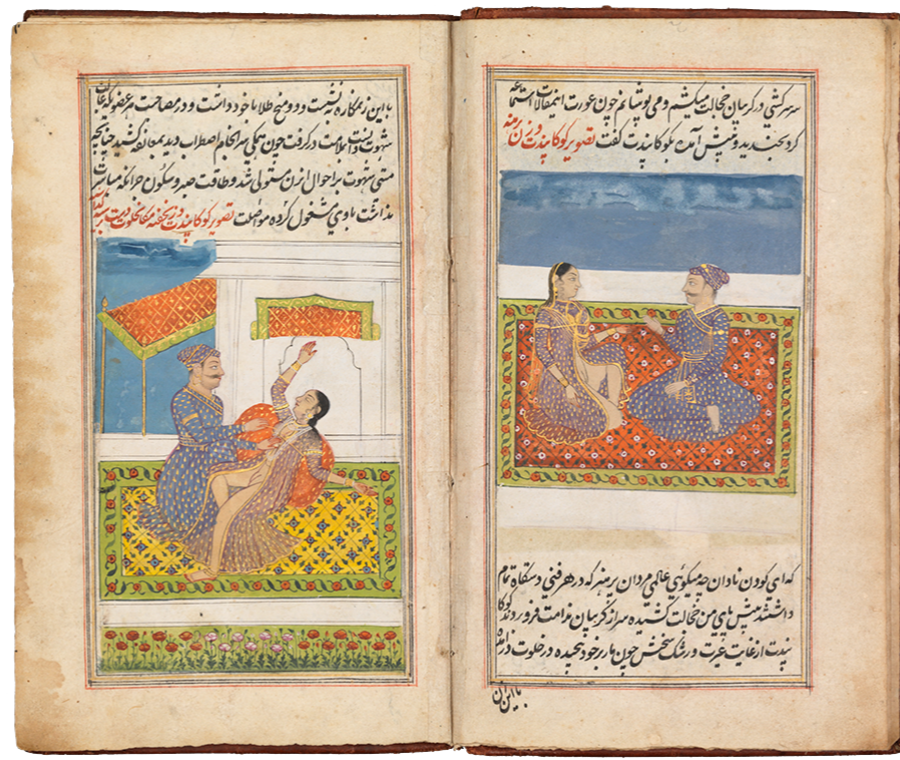 سر سرکشی در کریبان خجالت میکشم و می پوشانم چون عورت اینمقالات استماع
کرد بخندید و پیش آمده بکوکا پندت کفت تصویر کوکا پندت و زن برهنه
که ای کودن نادان چه میکوئی عالمی مردان پر هنر که در هر فنی دستکاه تمام
داشتند پیش پای من خجالت کشیده سر از کریبان ندامت فرو بردند کوکا
پندت از غایت غیرت و رشک سخنش چون مار بر خود پیچیده در خلوت در آمده
با این زن
با این زن مکاره نشست و دو میخ طلا با خود داشت و در مصاحبت هر عضو که جای
شهوت دانست در کرفت چون بکلی سرانجام دید بمعانقه کشید چنانچه
مستی شهوت بر احوال آن زن مستولی شد و طاقت صبر و سکون مباشرت
نداشت باوی مشغول کرده مواصلت تصویر کوکا پندت در خلوت